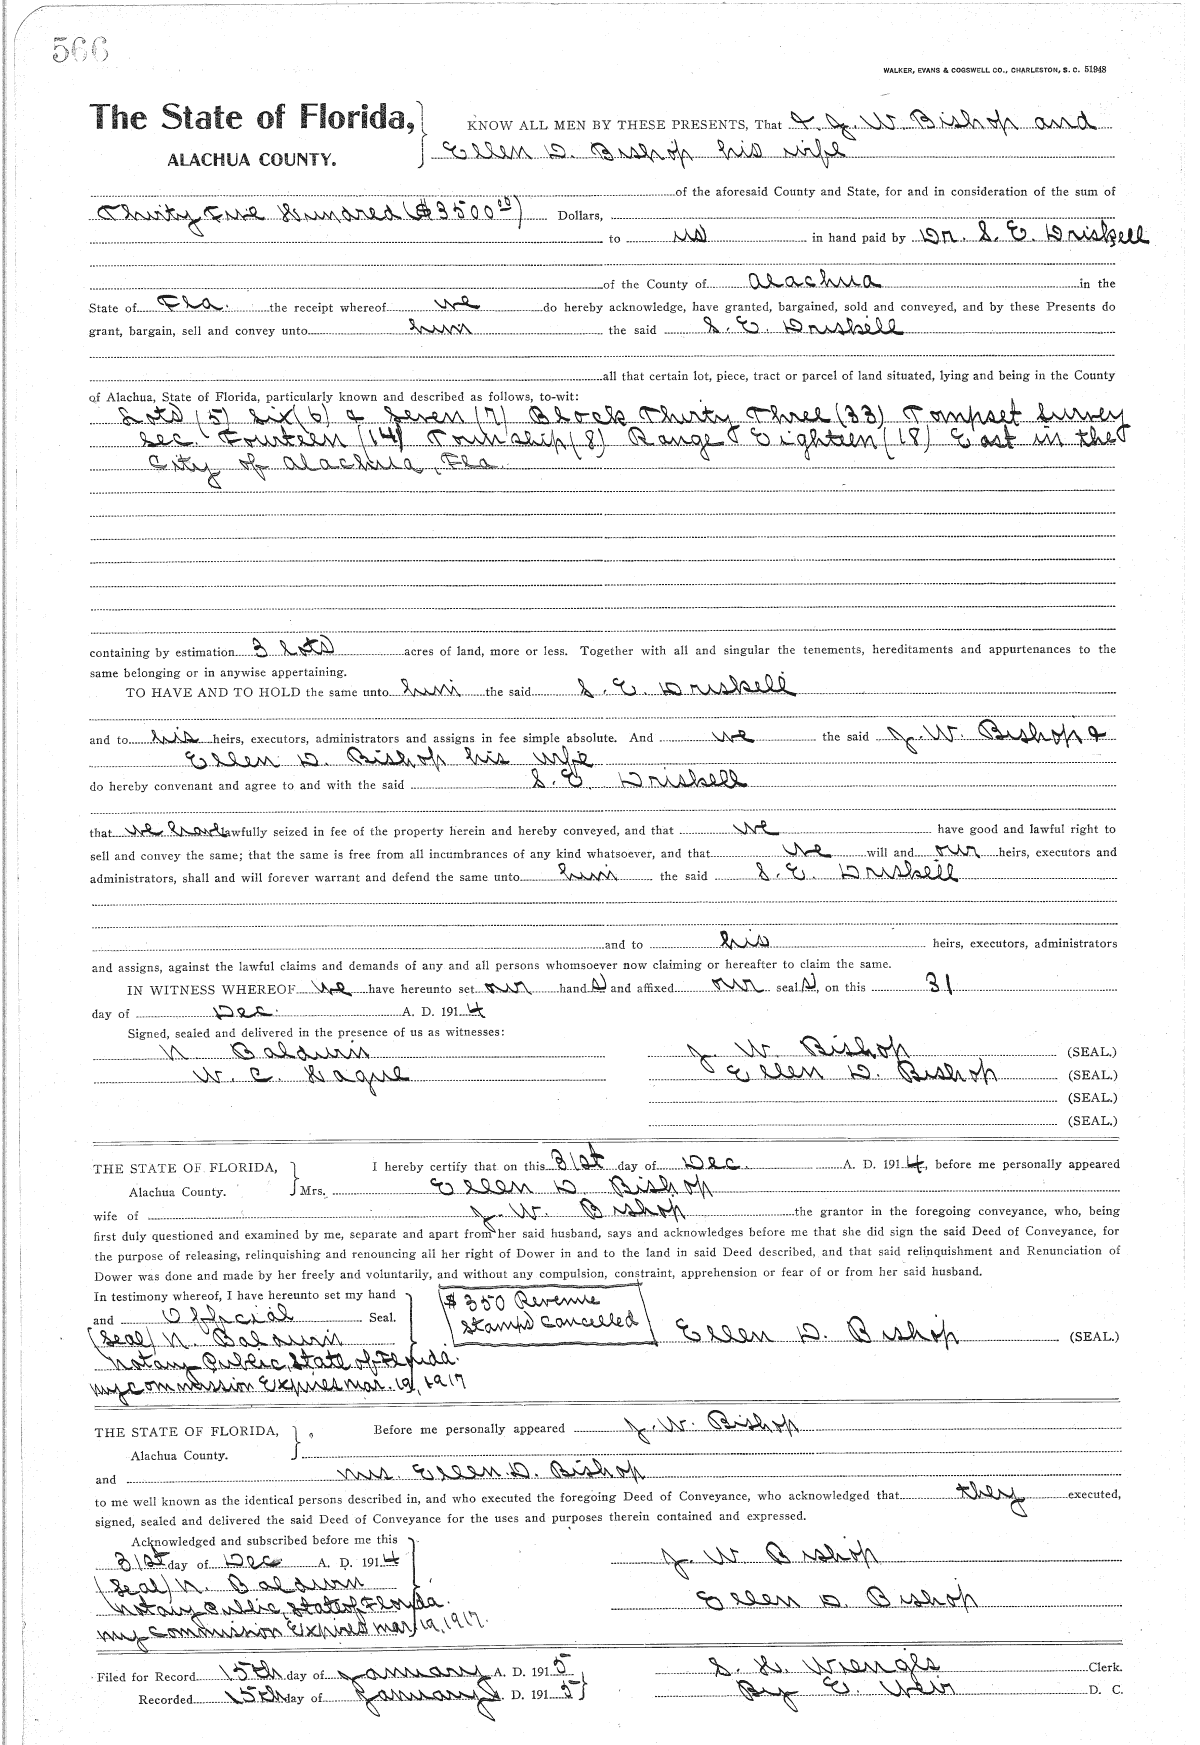 566
WALKER, EVANS & COGSWELL CO., CHARLESTON, S. C. 51948
The State of Florida, KNOW ALL MEN BY THESE PRESENTS, That I, J. W. Bishop and
ALACHUA COUNTY. Ellen D. Bishop his wife
of the aforesaid County and State, for and in consideration of the sum of
Thirty Five Hundred ($3500 00) Dollars,
to us in hand paid by Dr. S. E. Driskell
of the County of Alachua in the
State of Fla. the receipt whereof we do hereby acknowledge, have granted, bargained, sold and conveyed, and by these Presents do
grant, bargain, sell and convey unto him the said S. E. Driskell
all that certain lot, piece, tract or parcel of land situated, lying and being in the County
of Alachua, State of Florida, particularly known and described as follows, to-wit:
Lots (5) Six (6) & Seven (7) Block Thirty Three (33) Tompset Survey
Sec. Fourteen (14) Township (8) Range Eighteen (18) East in the
City of Alachua, Fla.
containing by estimation 3 lots acres of land, more or less. Together with all and singular the tenements, hereditaments and appurtenances to the
same belonging or in anywise appertaining.
TO HAVE AND TO HOLD the same unto him the said S. E. Driskell
and to his heirs, executors, administrators and assigns in fee simple absolute. And we the said J. W. Bishop &
Ellen D. Bishop his wife
do hereby convenant and agree to and with the said S. E. Driskell
that we have lawfully seized in fee of the property herein and hereby conveyed, and that we have good and lawful right to
sell and convey the same; that the same is free from all incumbrances of any kind whatsoever, and that we will and our heirs, executors and
administrators, shall and will forever warrant and defend the same unto him the said S. E. Driskell
and to his heirs, executors, administrators
and assigns, against the lawful claims and demands of any and all persons whomsoever now claiming or hereafter to claim the same.
IN WITNESS WHEREOF we have hereunto set our hand s and affixed our seal s, on this 31
day of Dec. A. D. 1914
Signed, sealed and delivered in the presence of us as witnesses:
N. Baldwin J. W. Bishop (SEAL.)
W. C. Hague Ellen D. Bishop (SEAL.)
(SEAL.)
(SEAL.)
THE STATE OF FLORIDA, I hereby certify that on this 31st day of Dec. A. D. 1914, before me personally appeared
Alachua County. Mrs. Ellen D. Bishop
wife of J. W. Bishop the grantor in the foregoing conveyance, who, being
first duly questioned and examined by me, separate and apart from her said husband, says and acknowledges before me that she did sign the said Deed of Conveyance, for
the purpose of releasing, relinquishing and renouncing all her right of Dower in and to the land in said Deed described, and that said relinquishment and Renunciation of
Dower was done and made by her freely and voluntarily, and without any compulsion, constraint, apprehension or fear of or from her said husband.
In testimony whereof, I have hereunto set my hand
and Official Seal.
$350 Revenue
Stamps Cancelled
(Seal) N. Baldwin Ellen D. Bishop (SEAL.)
Notary Public, State of Florida.
My Commission Expires Mar. 19, 1917
THE STATE OF FLORIDA, Before me personally appeared J. W. Bishop
Alachua County.
and Mrs. Ellen D. Bishop
to me well known as the identical persons described in, and who executed the foregoing Deed of Conveyance, who acknowledged that they executed,
signed, sealed and delivered the said Deed of Conveyance for the uses and purposes therein contained and expressed.
Acknowledged and subscribed before me this
31st day of Dec A. D. 1914 J. W Bishop
(Seal) N. Baldwin
Notary Public, State of Florida. Ellen D. Bishop
My Commission Expires Mar 19, 1917.
Filed for Record 15th day of January A. D. 1915 S. H. Wienges Clerk.
Recorded 15th day of January A. D. 1915 By E. D. C.